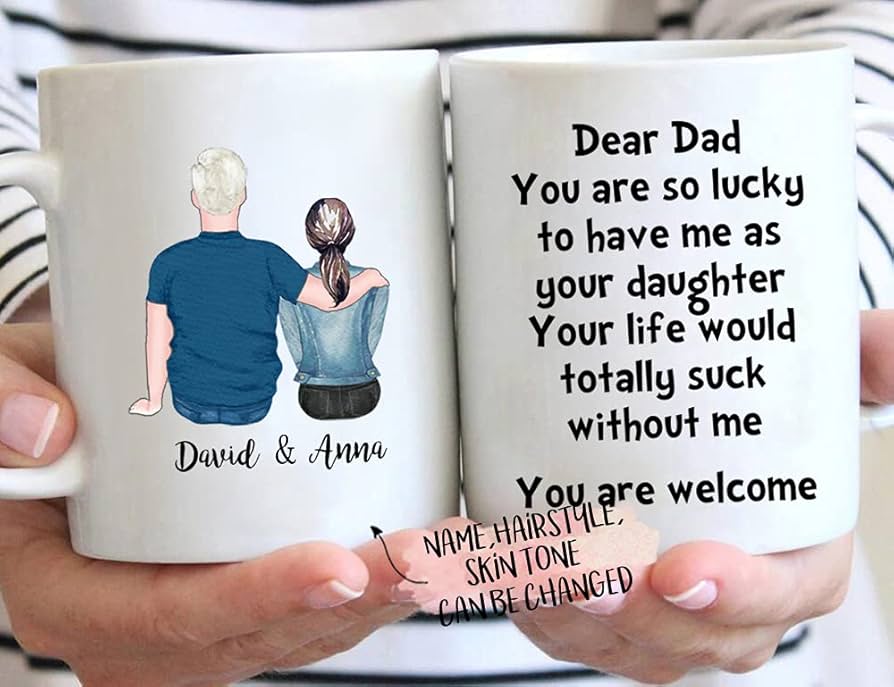 David & Anna
Dear Dad
You are so lucky
to have me as
your daughter
Your life would
totally suck
without me
You are welcome
NAME,HAIRSTYLE,
SKIN TONE
CAN BE CHANGED